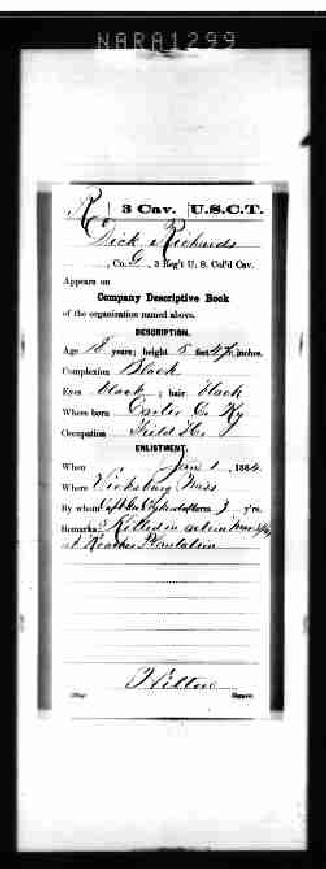 NARA1299
R | 3 Cav. | U.S.C.T.
Dick Richards
, Co. G, 3 Reg't U. S. Col'd Cav.
Appears on
Company Descriptive Book
of the organization named above.
DESCRIPTION.
Age 18 years; height 5 feet inches.
Complexion Black
Eyes black; hair black
Where born Carter C. Ky
Occupation Field H.
ENLISTMENT.
When Jan 1, 1864.
Where Vicksburg Miss
By whom Capt term 3 y'rs.
Remarks: Killed in action
at Plantation